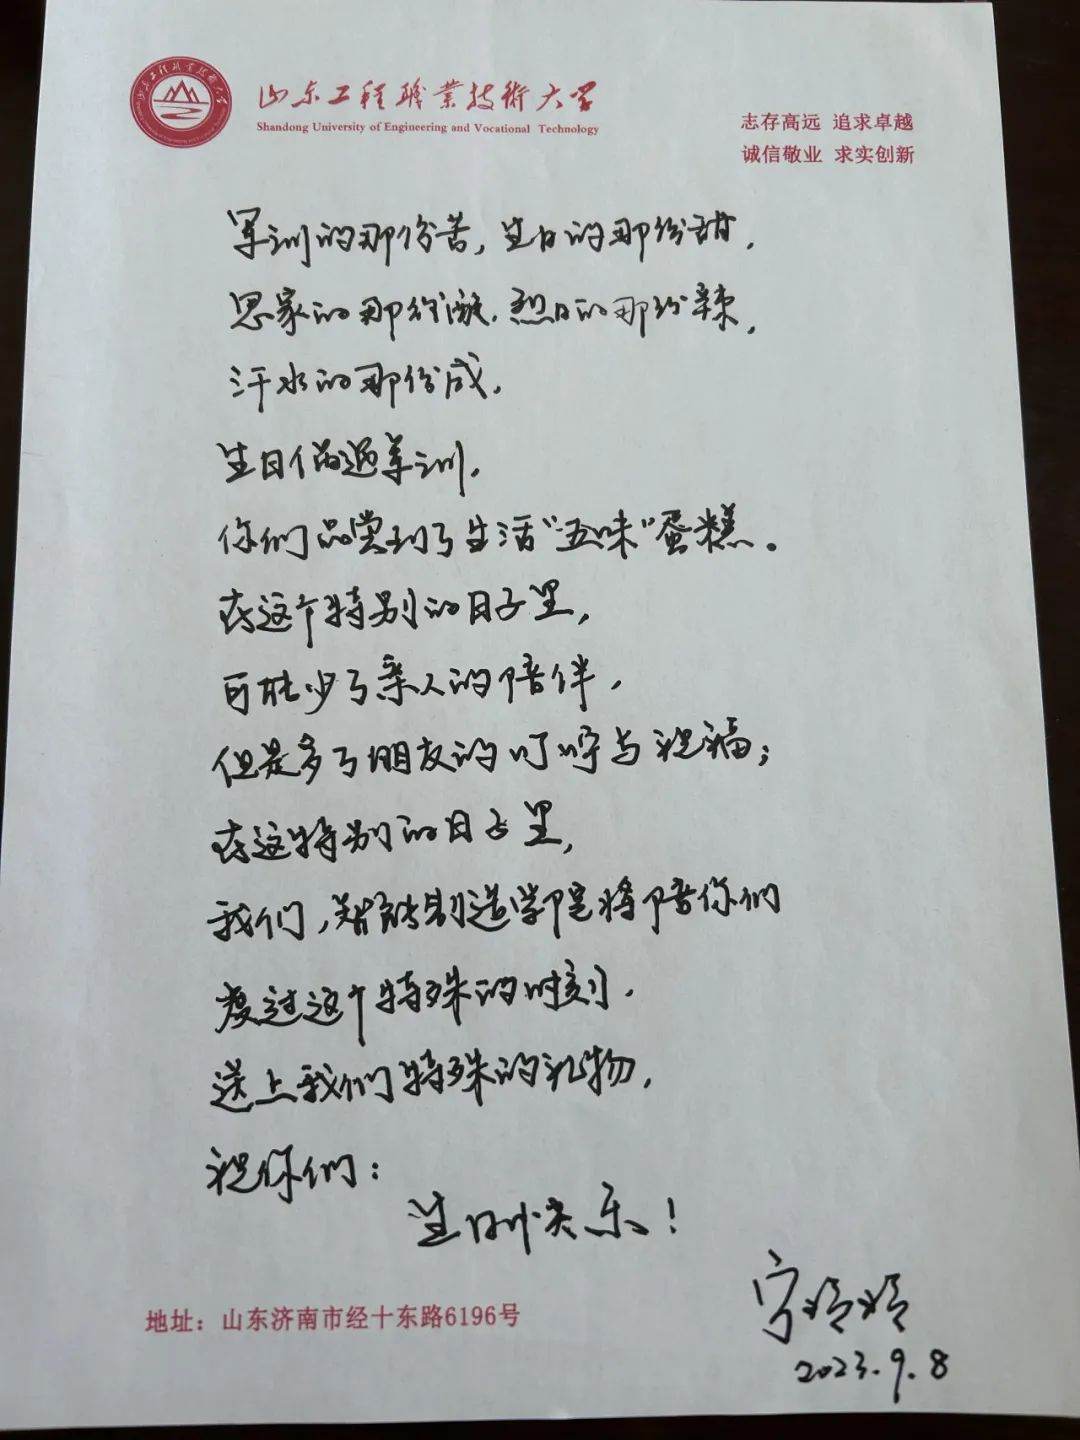 山东工程職業技術大学
Shandong University of Engineering and Vocational Technology
志存高远 追求卓越
诚信敬业 求实创新
军训的那份苦,生日的那份甜,
思家的那份涩,烈日的那份辣,
汗水的那份咸,
生日偶遇军训,
你们品尝到了生活“五味”蛋糕。
在这个特别的日子里,
可能少了亲人的陪伴,
但是多了朋友的叮咛与祝福;
在这特别的日子里,
我们,智能制造学院将陪你们
度过这个特殊的时刻,
送上我们特殊的礼物,
祝你们:
生日快乐!
地址:山东济南市经十东路6196号
宁玲玲
2023.9.8